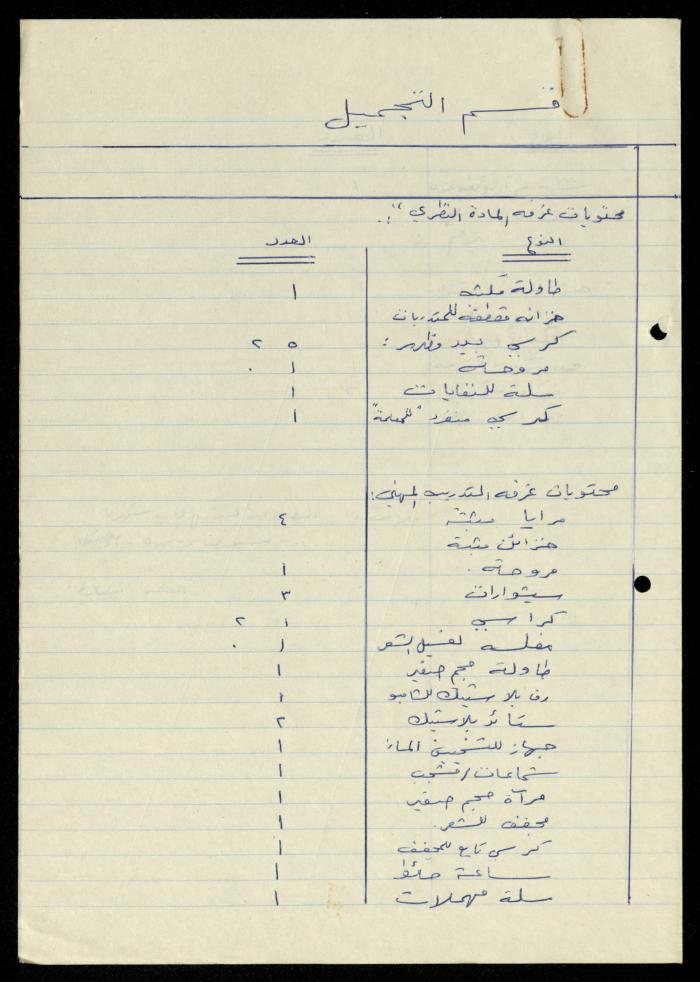 قسم التجميل
محتويات غرفه المادة النظري :.
النوع العدد
طاولة مثلثه ١
خزانه للمتدربات
كرسي بيد ٢٥
مروحة ١
سلة للنفايات ١
كرسي منفرد "للمعلمة" ١
محتويات غرفه التدريب المهني :
مرايا مثبتة ٤
خزائن مثبة
مروحة . ١
سيشوارات ٣
كراسي ٢١
مغسله لغسيل الشعر ١
طاولة حجم صغير ١
رف بلاستيك للشامبو ١
ستائر بلاستيك ٢
جهاز للتسخين الماء ١
شماعات / مشجب ١
مرآة حجم صغير ١
مجفف للشعر . ١
كرسي تابع للمجفف ١
ساعة حائط ١
سلة مهملات ١